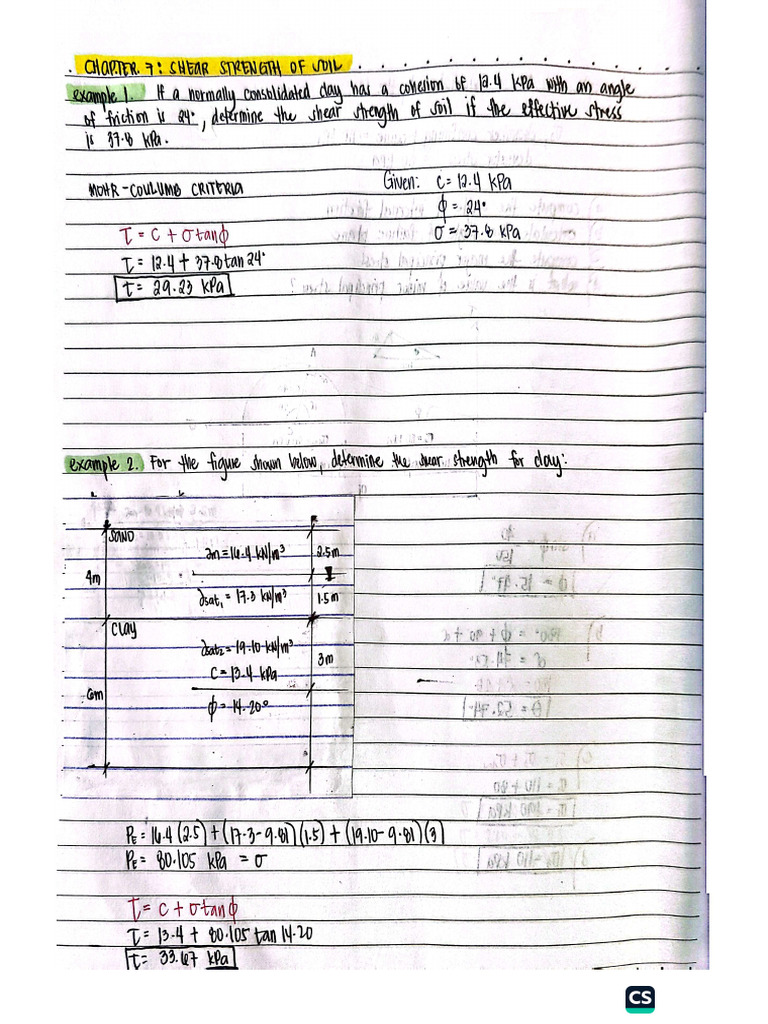 . CHAPTER 7: SHEAR STRENGTH OF SOIL
example 1. If a normally consolidated clay has a cohesion of 12.4 kPa with an angle
of friction is 24°, determine the shear strength of soil if the effective stress
is 37.8 kPa.
MOHR-COULUMB CRITERIA
Given: C = 12.4 kPa
ϕ = 24°
σ = 37.8 kPa
τ = C + σ tanϕ
τ = 12.4 + 37.8 tan 24°
τ = 29.23 kPa
example 2. For the figure shown below, determine the shear strength for clay:
SAND
γm = 16.4 kN/m³
2.5m
4m
γsat₁ = 17.3 kN/m³
1.5m
Clay
γsat₂ = 19.10 kN/m³
C = 13.4 kPa
3m
6m
ϕ = 14.20°
PE = 16.4 (2.5) + (17.3 - 9.81)(1.5) + (19.10 - 9.81)(3)
PE = 80.105 kPa = σ
τ = C + σ tanϕ
τ = 13.4 + 80.105 tan 14.20
τ = 33.67 kPa
CS